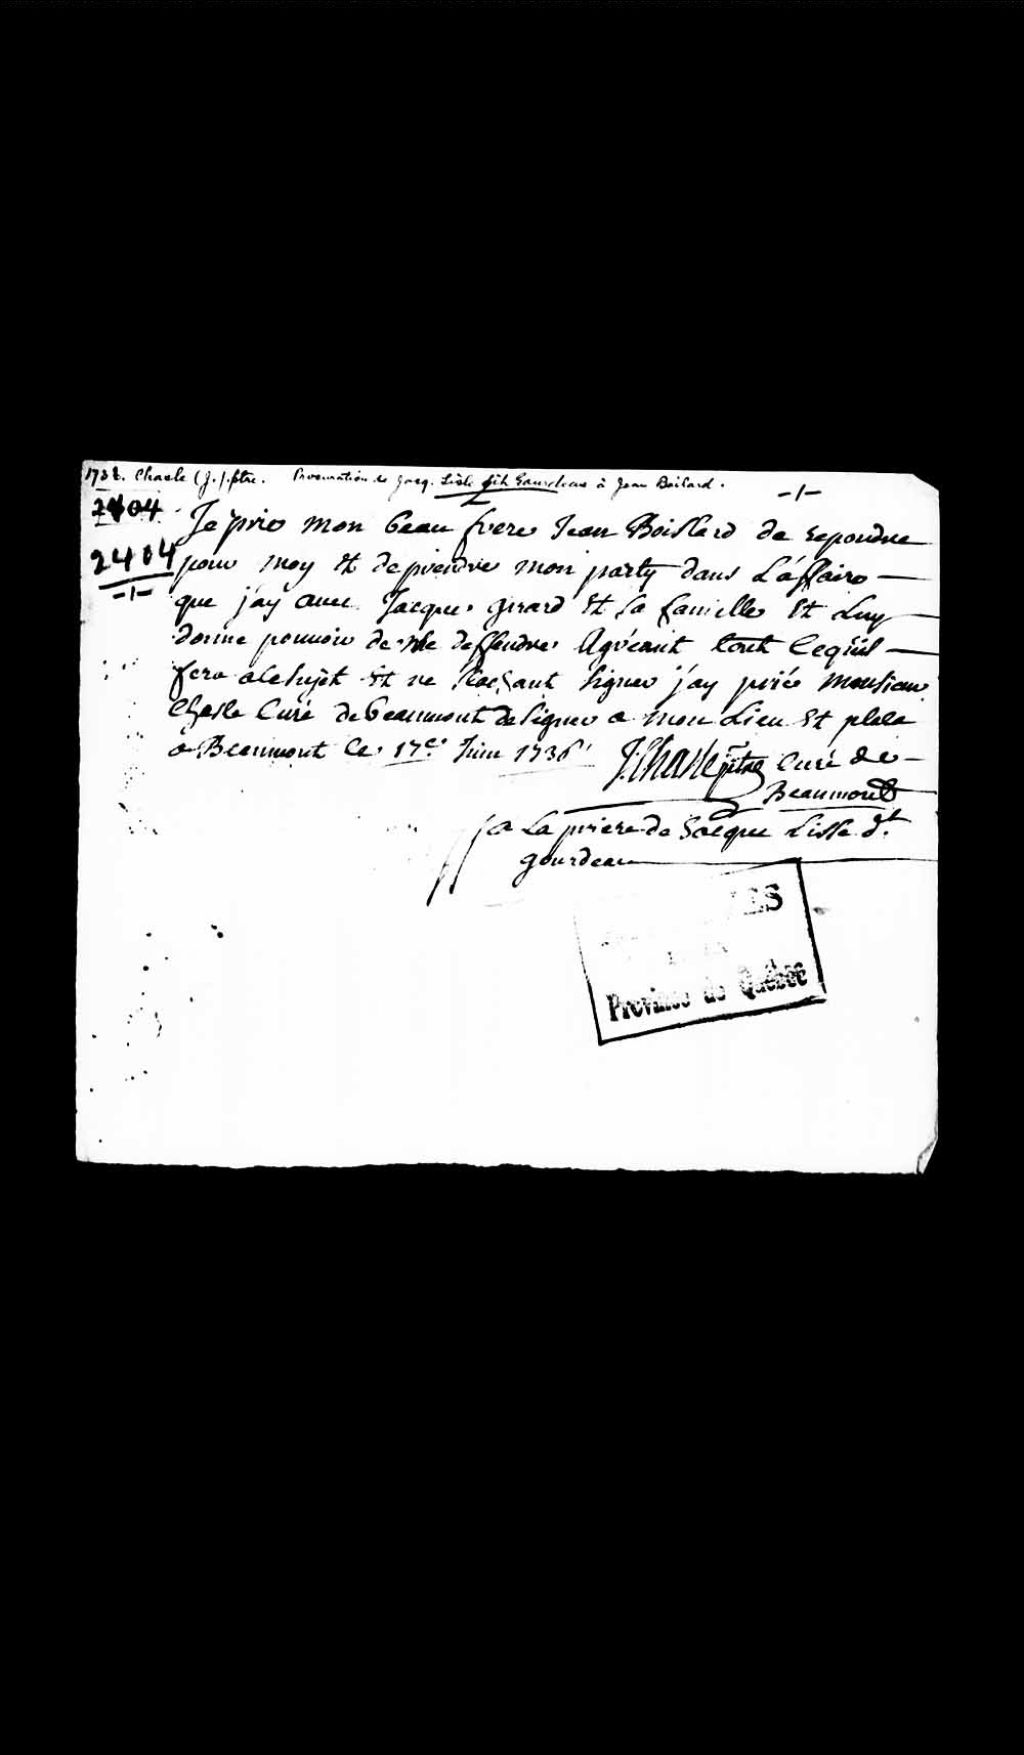 1738. Chasle (J.) ptre. Procuration de Jacq. Lisle dit Gourdeau à Jean Boilard. -1-
2404
2404
-1-
Je prie mon beau frere Jean Boislard de repondre
pour moy et de prendre mon party dans L'affaire
que j'ay avec Jacque girard et sa famille et Luy
donne pouvoir de me deffendre Agréant tout Cequil
fera a ce sujet et ne Scachant signer j'ay prié Monsieur
Chasle Curé de beaumont de signer a mon Lieu et place
a Beaumont Ce 17e Juin
J. Chasle ptre Curé de
Beaumont
a La priere de Jacque Lisle dt
gourdeau
Province de Québec